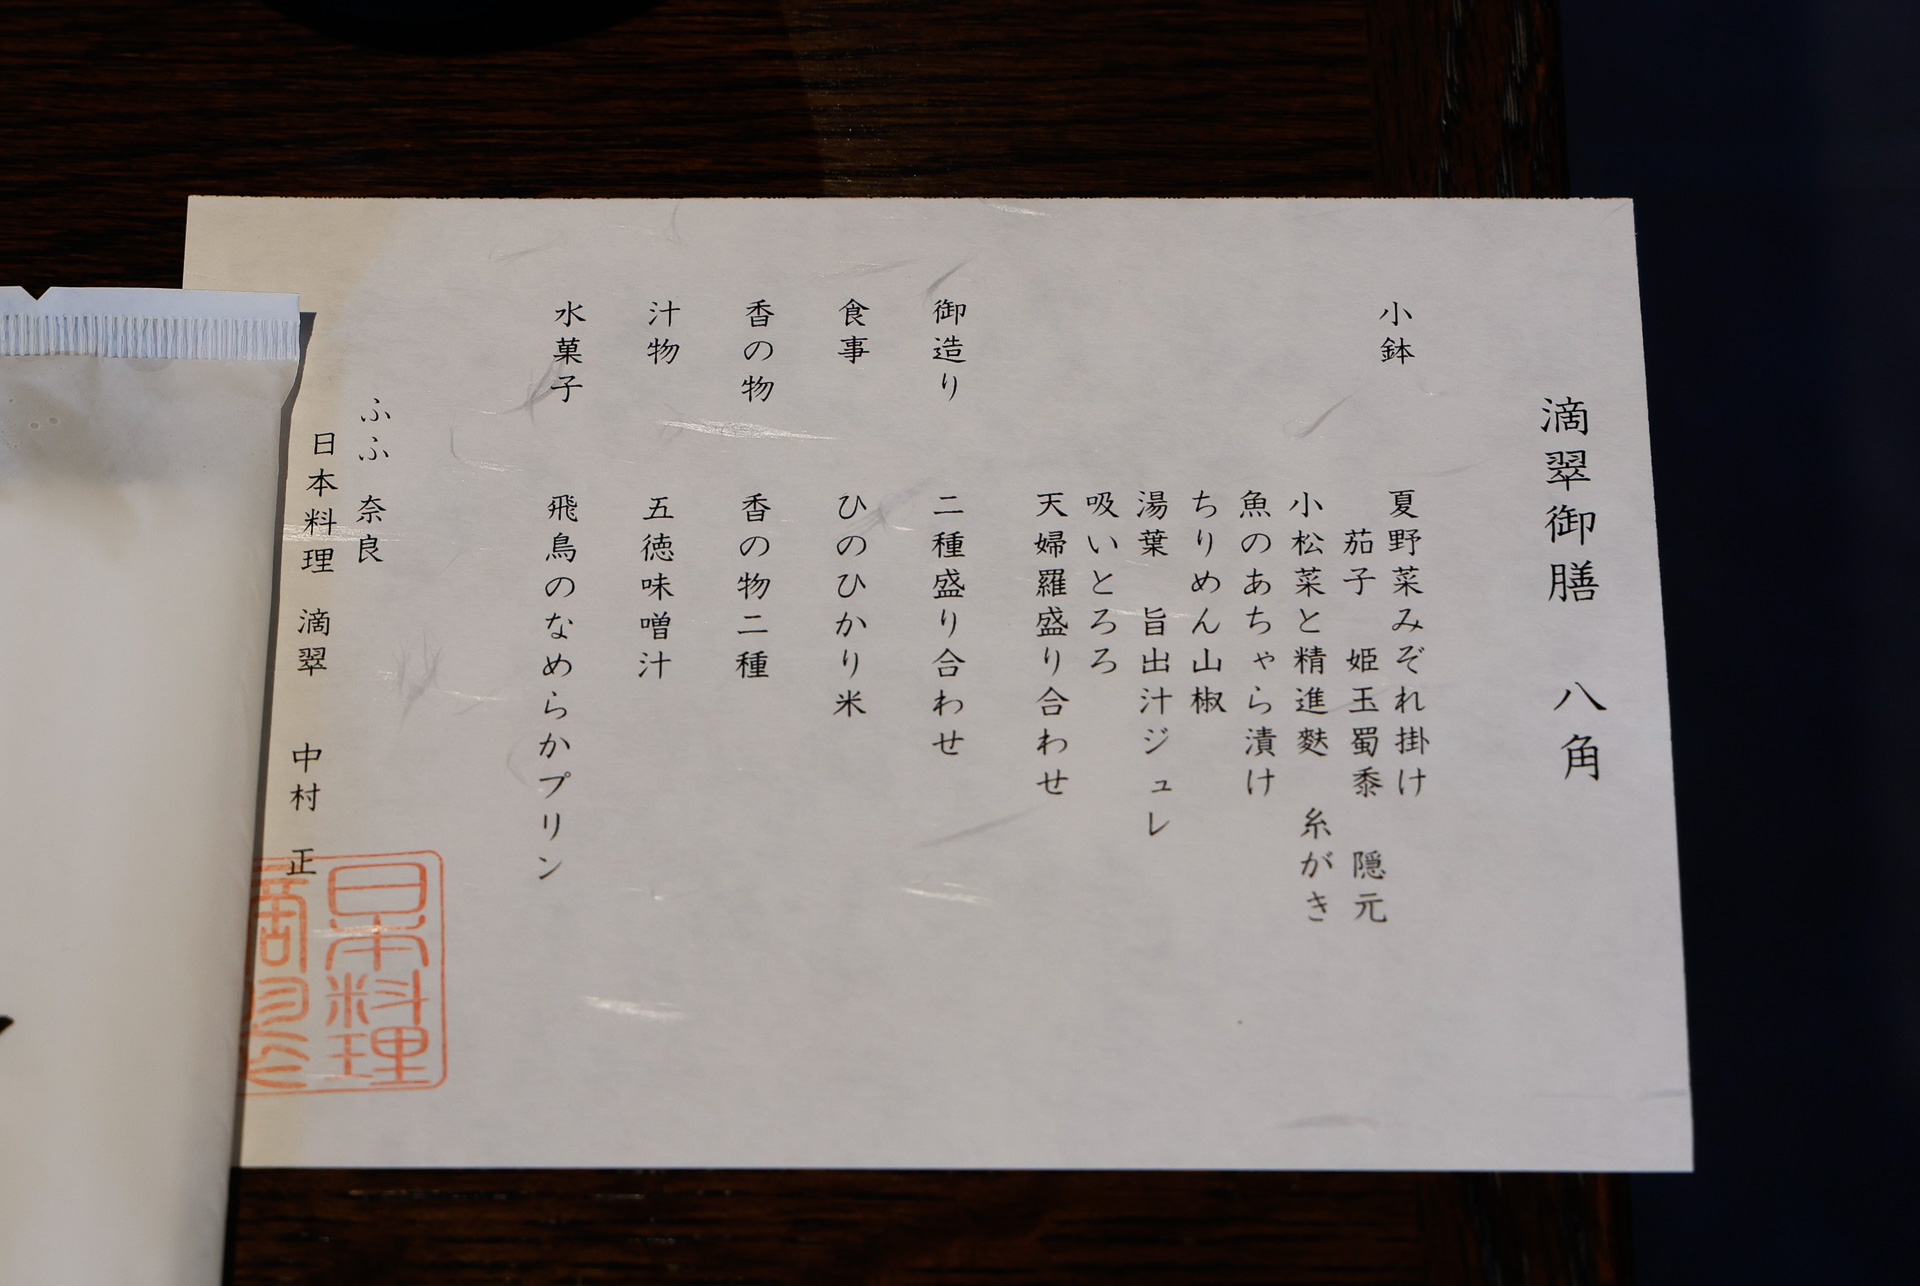 滴翠御膳 八角
小鉢 夏野菜みぞれ掛け
茄子 姫玉蜀黍 隠元
小松菜と精進麩 糸がき
魚のあちゃら漬け
ちりめん山椒
湯葉 旨出汁ジュレ
吸いとろろ
天婦羅盛り合わせ
御造り 二種盛り合わせ
食事 ひのひかり米
香の物 香の物二種
汁物 五徳味噌汁
水菓子 飛鳥のなめらかプリン
ふふ 奈良
日本料理 滴翠 中村 正
日本料理